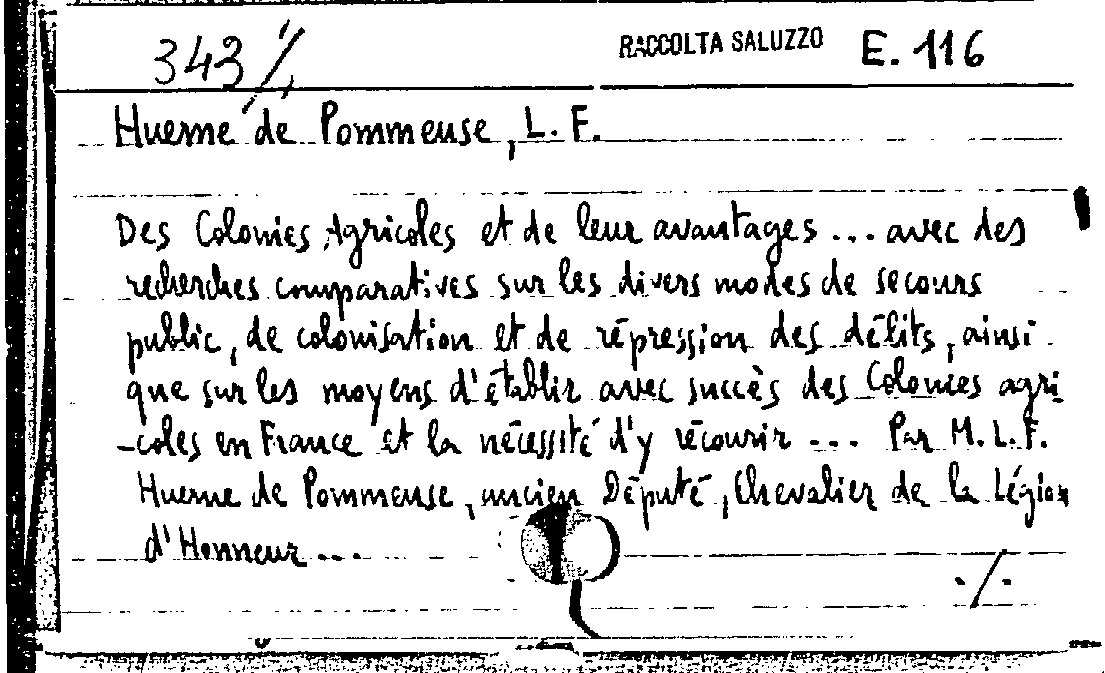 343 ./. RACCOLTA SALUZZO E. 116
Huerne de Pommeuse, L. F.
Des Colonies Agricoles et de leur avantages ... avec des
recherches comparatives sur les divers modes de secours
public, de colonisation et de répression des délits, ainsi
que sur les moyens d'établir avec succès des Colonies agri
-coles en France et la nécessité d'y récourir ... Par M. L. F.
Huerne de Pommeuse, ancien Député, Chevalier de la Légion
d'Honneur ...
./.